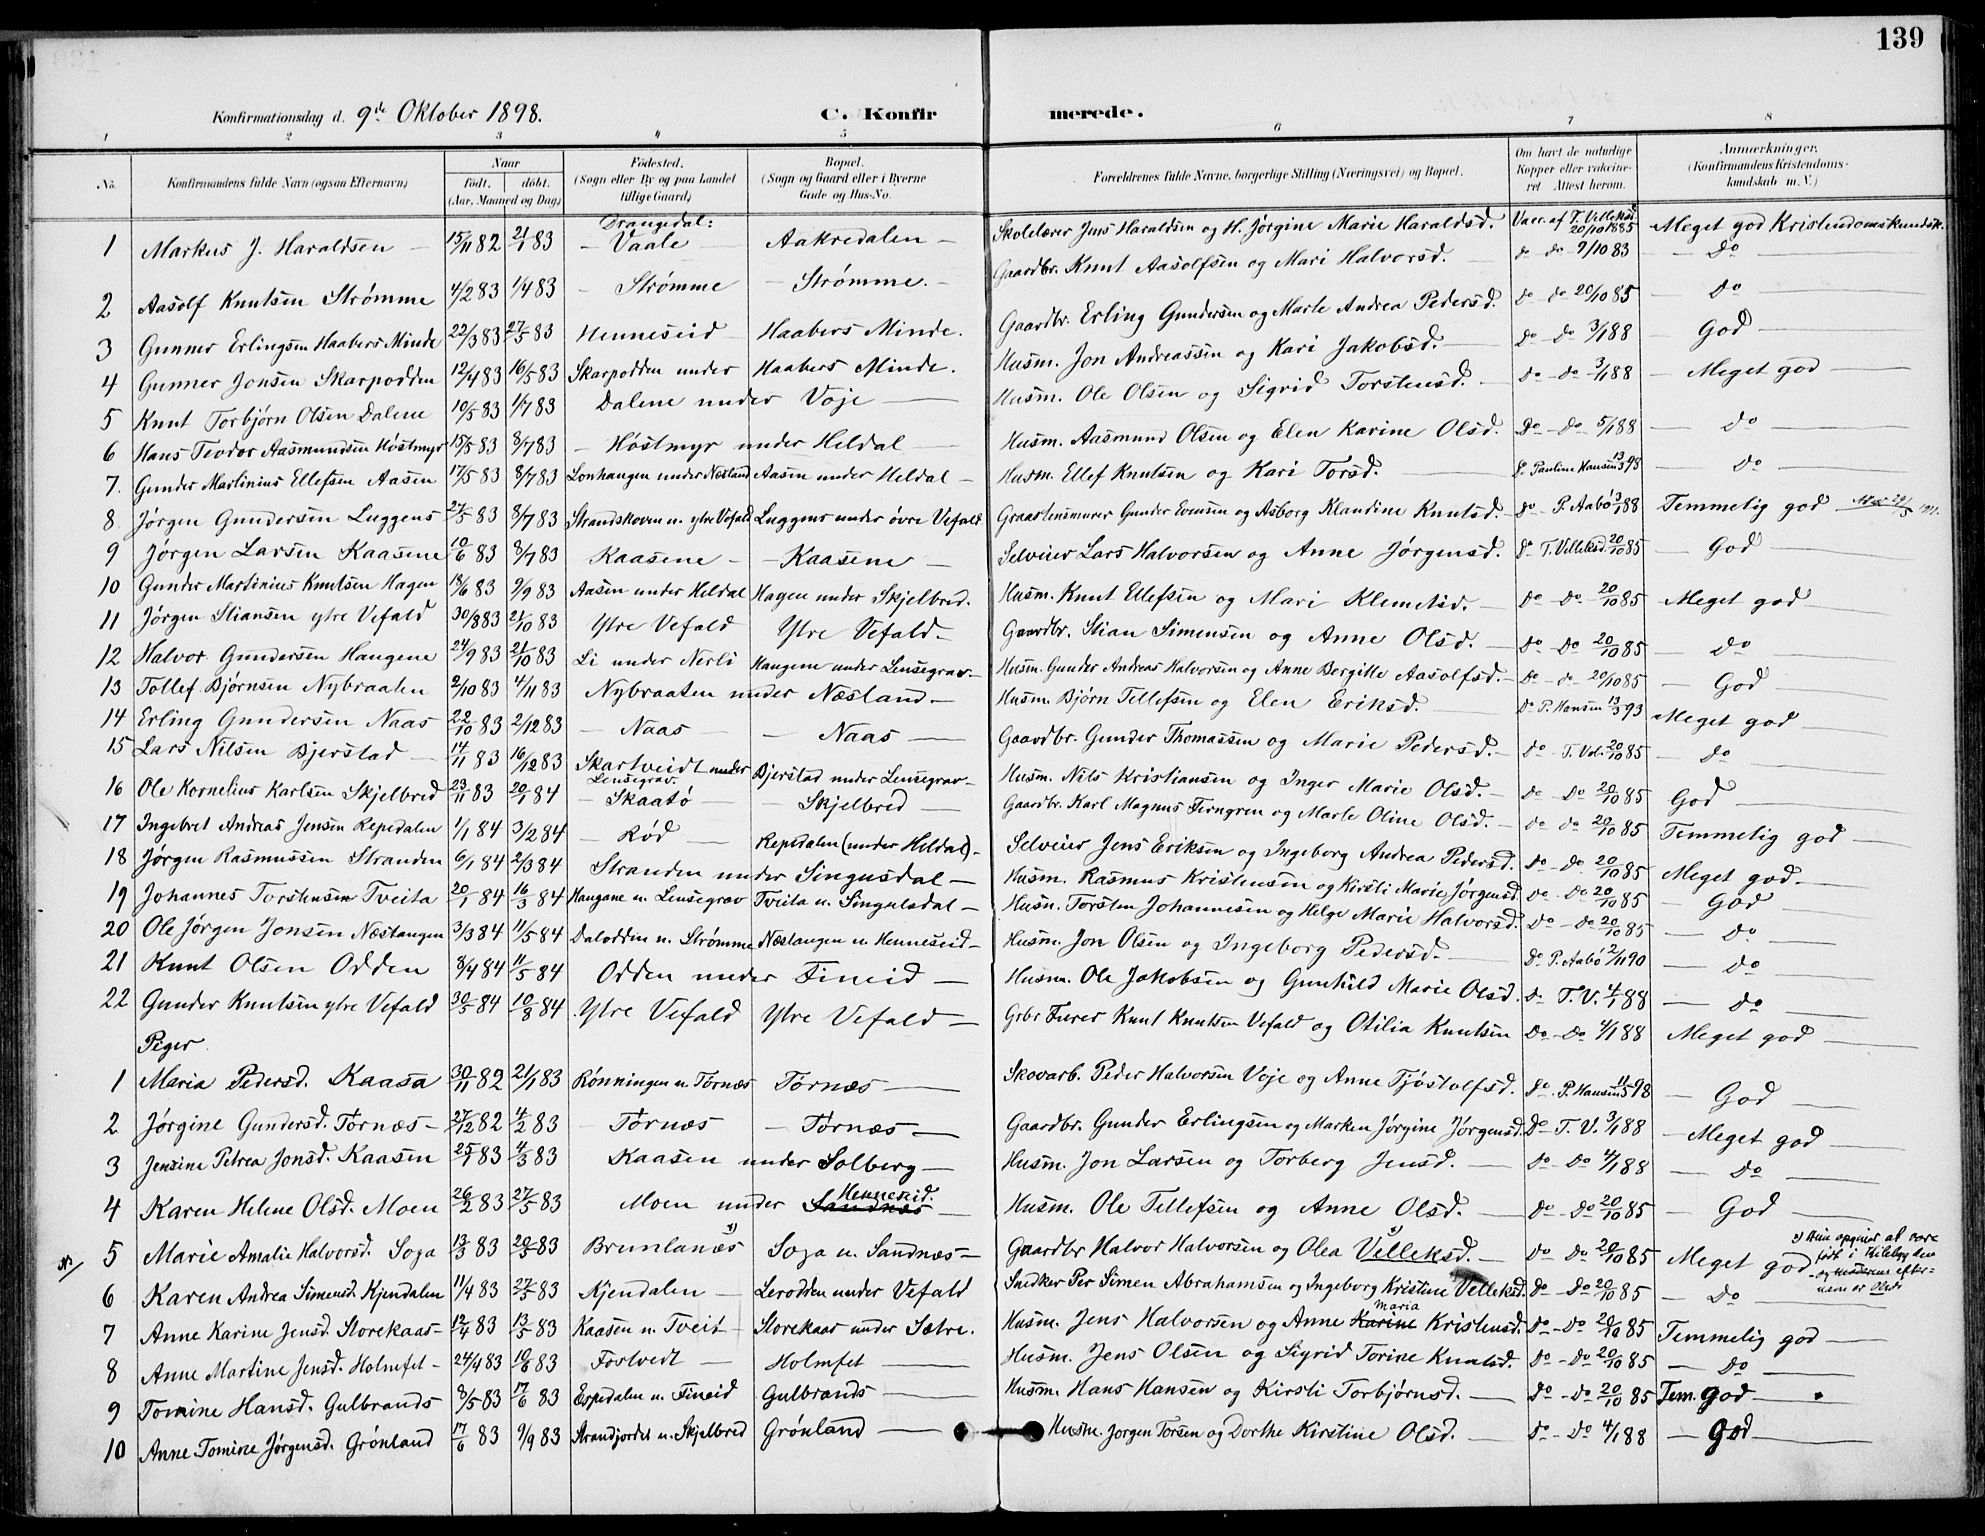 139
Konfirmationsdag d. 9de Oktober 1898. C. Konfirmerede.
1 2 3 4 5 6 7 8
No. Konfirmandens fulde Navn (ogsaa Efternavn) Naar født. døbt. (Aar, Maaned og Dag) Fødested. (Sogn eller By og paa Landet tillige Gaard) Bopæl. (Sogn og Gaard eller i Byerne Gade og Hus-No. Forældrenes fulde Navne, borgerlige Stilling (Næringsvei) og Bopæl. Om havt de naturlige Kopper eller vakcineret Attest herom. Anmærkninger. (Konfirmandens Kristendomskundskab m. V.)
1 Markus J. Haraldsen – 15/11 82 21/1 83 Drangedal: – Vaale – Aakredalen – Skolelærer Jens Haraldsen og H. Jørgine Marie Haraldsd. Vacc. af T. Velleksd. 20/10 1885 Meget god Kristendomskundsk.
2 Aasolf Knutsen Strømme 4/2 83 1/4 83 – Strømme – Strømme. – Gaardbr. Knut Aasolfsen og Mari Halvorsd. – do do 9/10 83 – Do
3 Gunner Erlingsen Haabers Minde 22/3 83 27/5 83 Henneseid Haabers Minde. Gaardbr. Erling Gundersen og Marte Andrea Pedersd. do do 20/10 85 – Do
4 Gunner Jonsen Skarpodden 12/4 83 16/5 83 Skarpodden under Haabers Minde. Husm. Jon Andreassen og Kari Jakobsd. – Do – Do 3/1 88 God
5 Knut Torbjørn Olsen Dalene 10/5 83 1/7 83 Dalene under Voje – Husm. Ole Olsen og Sigrid Torstensd. – Do – Do 3/1 88 – Meget god –
6 Hans Teodor Aasmundsen Høstmyr 15/5 83 8/7 83 – Høstmyr under Heldal – Husm. Aasmund Olsen og Elen Karine Olsd. Do – Do 5/1 88 – Do
7. Gunder Martinius Ellefsen Aasen 17/5 83 8/7 83 Lonhangen under Næsland Aasen under Heldal – Husm. Ellef Knutsen og Kari Torsd. Do Pauline Hansen 13/3 93 – Do
8 Jørgen Gundersen Luggens 27/5 83 8/7 83 Strandskoven u. ytre Vefald Luggens under øvre Vefald Graastensmurer Gunder Evensen og Asborg Klandine Knutsd. – Do – P. Aabø 3/1 88 Temmelig god
9 Jørgen Larsen Kaasene 10/6 83 8/7 83 Kaasene – – Kaasene – Selveier Lars Halvorsen og Anne Jørgensd. Do T. Velleksd. 20/10 85 – God
10 Gunder Martinius Knutsen Hagen 18/6 83 9/9 83 Aasen under Heldal Hagen under Skjelbred. Husm. Knut Ellefsen og Mari Klemetsd. – Do – Do 20/10 85 Meget god
11 Jørgen Stiansen ytre Vefald 30/8 83 21/10 83 Ytre Vefald Ytre Vefald – Gaardbr. Stian Simensen og Anne Olsd. – Do – Do 20/10 85 – Do
12 Halvor Gundersen Haugene 24/9 83 21/10 83 Li under Nerli Haugene under Lensegrav – Husm. Gunder Andreas Halvorsen og Anne Bergitte Aasolfsd. – Do – do 20/10 85 – God
13 Tollef Bjørnsen Nybraaten 2/10 83 4/11 83 Nybraaten under Næsland – Husm. Bjørn Tellefsen og Elen Eriksd. – Do P. Hansen 13/3 93 Meget god
14 Erling Gundersen Naas 22/10 83 2/12 83 – Naas – – Naas – Gaardbr. Gunder Thomassen og Marie Pedersd. – Do – T. Vel. 20/10 85 – Do
15 Lars Nilsen Bjerstad – 14/11 83 16/12 83 Skartveidt under Lensegrav. Bjerstad under Lensegrav – Husm. Nils Kristiansen og Inger Marie Olsd. – Do – Do 20/10 85 God
16 Ole Kornelius Karlsen Skjelbred 23/11 83 20/1 84 – Skaatø – – Skjelbred – Gaardbr. Karl Magnus Ferngren og Marte Oline Olsd. – do – do 20/10 85 Temmelig god
17 Ingebret Andreas Jensen Repedalen 1/1 84 3/2 84 – Rød – Repedalen (under Heldal). – Selveier Jens Eriksen og Ingeborg Andrea Pedersd. Do – Do 20/10 85 Meget god –
18 Jørgen Rasmussen Stranden 6/1 84 2/3 84 Stranden under Singusdal – Husm. Rasmus Kristensen og Kirsti Marie Jørgensd. Do – Do 20/10 85 – God
19 Johannes Torstensen Tveita 20/1 84 16/3 84 Haugane u. Lensegrav Tveita u. Singulsdal – Husm. Torsten Johannesen og Helge Marie Halvorsd. Do – Do 20/10 85 – Do
20 Ole Jørgen Jonsen Næstangen 3/3 84 11/5 84 Daloddin u. Strømme Næstangen u. Henneseid – Husm. Jon Olsen og Ingeborg Pedersd. – Do P. Aabø 2/11 90 – Do
21 Knut Olsen Odden 8/4 84 11/5 84 Odden under Fineid – Husm. Ole Jakobsen og Gunhild Marie Olsd. Do T. V. 4/1 88 – Do
22 Gunder Knutsen ytre Vefald 30/5 84 10/8 84 Ytre Vefald Ytre Vefald – Grbr. Fører Knut Knutsen Vefald og Otilia Knutsen Do – Do 4/1 88 Meget god
Piger.
1 Maria Pedersd. Kaasa 30/11 82 21/1 83 Rønningen u. Tørnæs Tørnæs – Skovarb. Peder Halvorsen Voje og Anne Tjøstolfsd. Do P. Hansen 11/5 98 – God
2 Jørgine Gundersd. Tørnæs – 27/12 82 4/2 83 – Tørnæs – Tørnæs – Gaardbr. Gunder Erlingsen og Marken Jørgine Jørgensd. Do T. V. 3/1 88 – Meget god
3 Jensine Petrea Jonsd. Kaasen 25/1 83 4/3 83 Kaasen under Solberg – Husm. Jon Larsen og Torberg Jensd. – Do – Do 4/1 88 – Do
4 Karen Helene Olsd. Moen 26/2 83 27/5 83 Moen under Henneseid. Sandnæs – Husm. Ole Tellefsen og Anne Olsd. – Do – Do 20/10 85 – God
5 Marie Amalie Halvorsd. Soga 13/3 83 20/5 83 Brunlanæs Soga u. Sandnæs – Gaardbr Halvor Halvorsen og Olea Velleksd. – Do – Do 20/10 85 Meget god Hun opgives at være født i Kilebygden og Moderens efternavn er Olsd.
6 Karen Andrea Simensd. Kjendalen 11/4 83 27/5 83 Kjendalen – Lerodden under Vefald Snedker Per Simen Abrahamsen og Ingeborg Kristine Velleksd. Do – Do 20/10 85 – Do
7 Anne Karine Jensd. Storekaas – 12/4 83 13/5 83 Kaasen u. Tveit – Storekaas under Sætre. Husm. Jens Halvorsen og Anne Karine Maria Kristensd. Do – Do 20/10 85 Temmelig god
8 Anne Martine Jensd. Holmfet – 24/4 83 10/6 83 Fostvedt – Holmfet – Husm. Jens Olsen og Sigrid Torine Knutsd. Do – Do 20/10 85 – Do
9 Tomine Hansd. Gulbrands 8/5 83 17/6 83 Espedalen u. Fineid Gulbrands – Husm. Hans Hansen og Kirsti Torbjørnsd. – Do – Do 20/10 85 Tem. god
10 Anne Tomine Jørgensd. Grønland 17/6 83 9/9 83 Strandjordet u. Skjelbred Grønland – Husm. Jørgen Torsen og Dorthe Kirstine Olsd. – Do – Do 4/1 88 – God